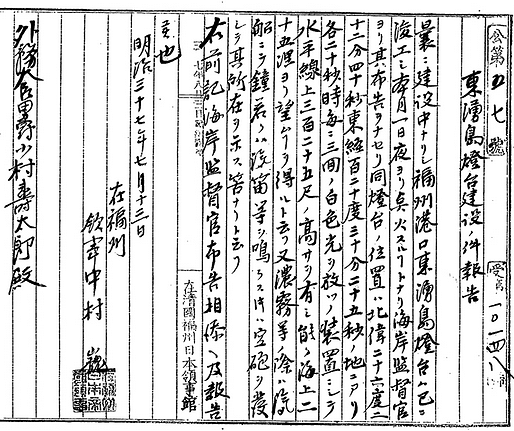 公第五七號
受 一〇一四八
東湧島燈台建設件報告
曩ニ建設中ナリシ福州港口東湧島燈台ハ已ニ
竣工シ本月一日夜ヨリ点火スルコトトナリ海岸監督官
ヨリ其布告ヲナセリ同燈台ノ位置ハ北偉二十六度二
十二分四十秒東経百二十度三十分二十五秒ノ地ニアリ
各二十秒時毎ニ三回ノ白色光ヲ放ツノ装置ニシテ
水平線上三百二十五尺ノ高サヲ有シ能ク海上二
十五浬ヨリ望ムヲ得ルト云フ又濃霧等ノ際ハ汽
船ニシテ鐘若クハ汽笛等ヲ鳴ラストキハ空砲ヲ発
シテ其所在ヲ示ス筈ナリト云フ
右前記海岸監督官布告相添ヘ及報告
候也
明治三十七年七月十三日
在福州
領事中村 巍
外務大臣男爵小村壽太郎殿
在清國福州日本領事館